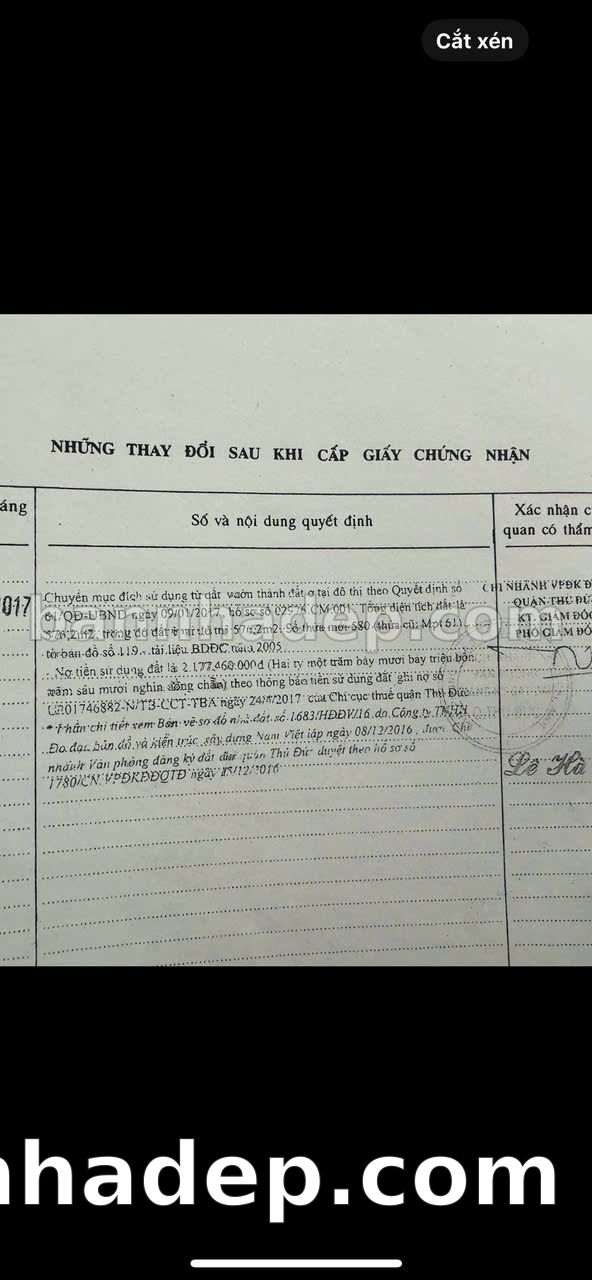 Cắt xén
NHỮNG THAY ĐỔI SAU KHI CẤP GIẤY CHỨNG NHẬN
áng
Số và nội dung quyết định
Xác nhận c
quan có thẩm
2017
Chuyển mục đích sử dụng từ đất vườn thành đất ở tại đô thị theo Quyết định số
61/QĐ-UBND ngày 09/01/2017, hồ sơ số 02526.CM.001. Tổng diện tích đất là
576,2m2, trong đó đất ở tại đô thị 576,2m2. Số thửa mới 580 (thửa cũ: Mpt 61)
tờ bản đồ số 119, tài liệu BĐĐC năm 2005.
Nợ tiền sử dụng đất là 2.177.460.000đ (Hai tỷ một trăm bảy mươi bảy triệu bốn
trăm sáu mươi nghìn đồng chẵn) theo thông báo tiền sử dụng đất ghi nợ số
01746882-N/TB-CCT-TBA ngày 24/4/2017 của Chi cục thuế quận Thủ Đức
* Phần chi tiết xem Bản vẽ sơ đồ nhà đất số 1683/HĐĐV/16 do Công ty TNHH
Đo đạc bản đồ và kiến trúc xây dựng Nam Việt lập ngày 08/12/2016, được Chi
nhánh Văn phòng đăng ký đất đai quận Thủ Đức duyệt theo hồ sơ số
1780/CN.VPĐKĐĐQTĐ ngày /12/2016
CHI NHÁNH VPĐK Đ
QUẬN THỦ ĐỨ
KT. GIÁM ĐỐC
PHÓ GIÁM ĐỐ
Lê Hà
bannhadep.com
nhadep.com